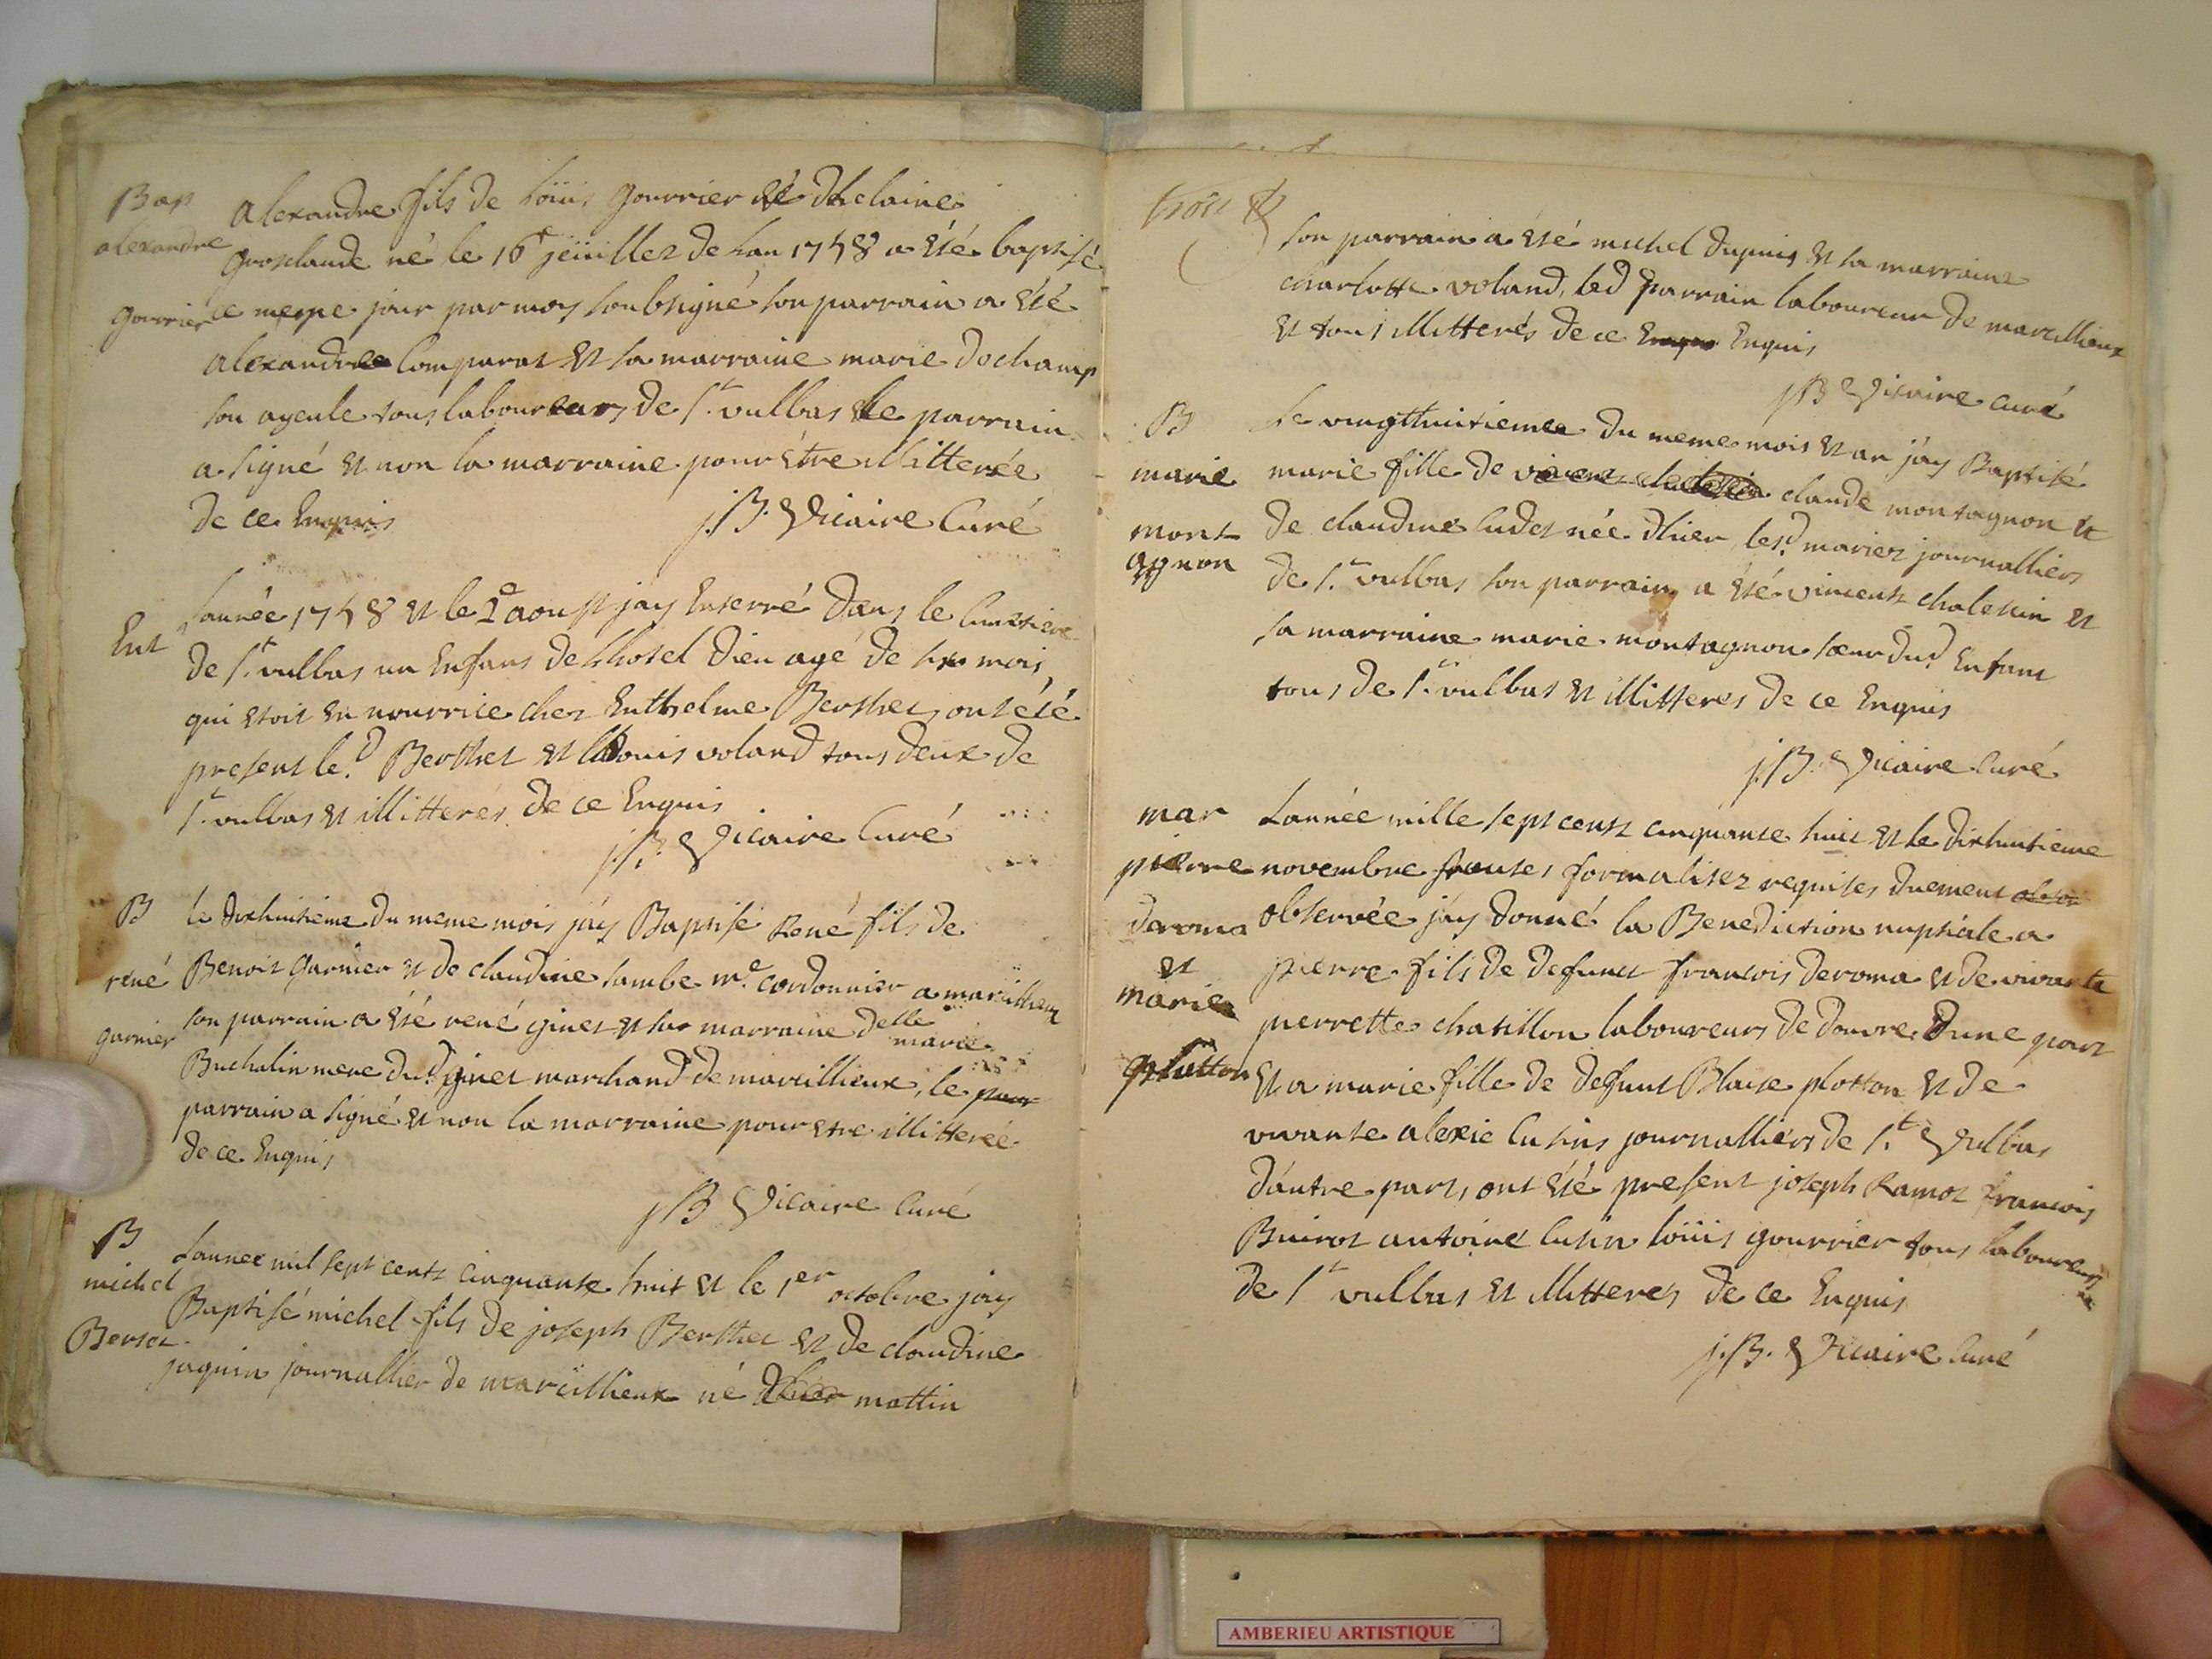 Bap
alexandre
gourrier
alexandre fils de loüis gourrier et dhelaine
grosclaude né le 16e jeuillet de lan 1758 a été baptisé
ce meme jour par moy soubsigné son parrain a été
alexandre Comparat et sa marraine marie dochamp
son ayeule tous laboureurs de St. vulbas le parrain
a signé et non la marraine pour être illitterée
de ce Enquis
j.B. Vicaire Curé
Ent
Lannée 1758 et le 2e aoust jay Enterré dans le Cimetiere
de St. vulbas un Enfans de lhotel dieu agé de six mois,
qui etoit en nourrice chez Enthelme Berthet, ont été
present led. Berthet et louis voland tous deux de
St. vulbas et illitterés de ce Enquis
j.B. Vicaire Curé
B
rené
garnier
le dixhuitième du meme mois j'ay Baptisé René fils de
Benoit garnier et de claudine lambe me. cordonnier a marcillieux
son parrain a été rené ginet et sa marraine delle marie
Buchalin mere dud. ginet marchand de marcillieux, le
parrain a signé et non la marraine pour etre illitterée
de ce Enquis
jB Vicaire Curé
B
michel
Berset
Lannee mil sept cents cinquante huit et le 1er octobre jay
Baptisé michel fils de joseph Berthet et de claudine
jaquin journallier de marcillieux né dhier mattin
son parrain a été michel dupuis et sa marraine
charlotte voland, led parrain laboureur de marcillieux
et tous illitterés de ce Enquis
jB Vicaire curé
B
marie
mont
agnon
Le vingthuitieme du meme mois et an j'ay Baptisé
marie fille de claude montagnon et
de claudine Cudet née dhier, lesd. mariez journalliers
de St. vulbas son parrain a été vincent chalessin et
sa marraine marie montagnon sœur dud. Enfant
tous de St. vulbas et illitteres de ce Enquis
j.B. Vicaire Curé
mar
pierre
deroma
et
marie
plutton
Lannée mille sept cents cinquante huit et le dixhuitieme
novembre toutes formalitez requises duement
observée j'ay donné la Benediction nuptiale a
pierre fils de defunct francois deroma et de vivante
pierrette chatillon laboureurs de douvre dune part
et a marie fille de defunt Blaise plotton et de
vivante alexie Cusin journalliers de St. Vulbas
d'autre part, ont été present joseph Ramot francois
Buirot antoine Cusin loüis gourrier tous laboureurs
de St vulbas et illitteres de ce Enquis
j.B. Vicaire Curé
AMBERIEU ARTISTIQUE